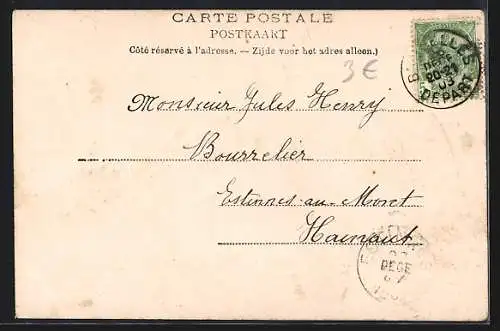 CARTE POSTALE
POSTKAART
Côté réservé à l'adresse. — Zijde voor het adres alleen.)
3 €
DÉPART
Monsieur Jules Henry
Bourrelier
Estinnes-au-Mont
Hainaut
DECE